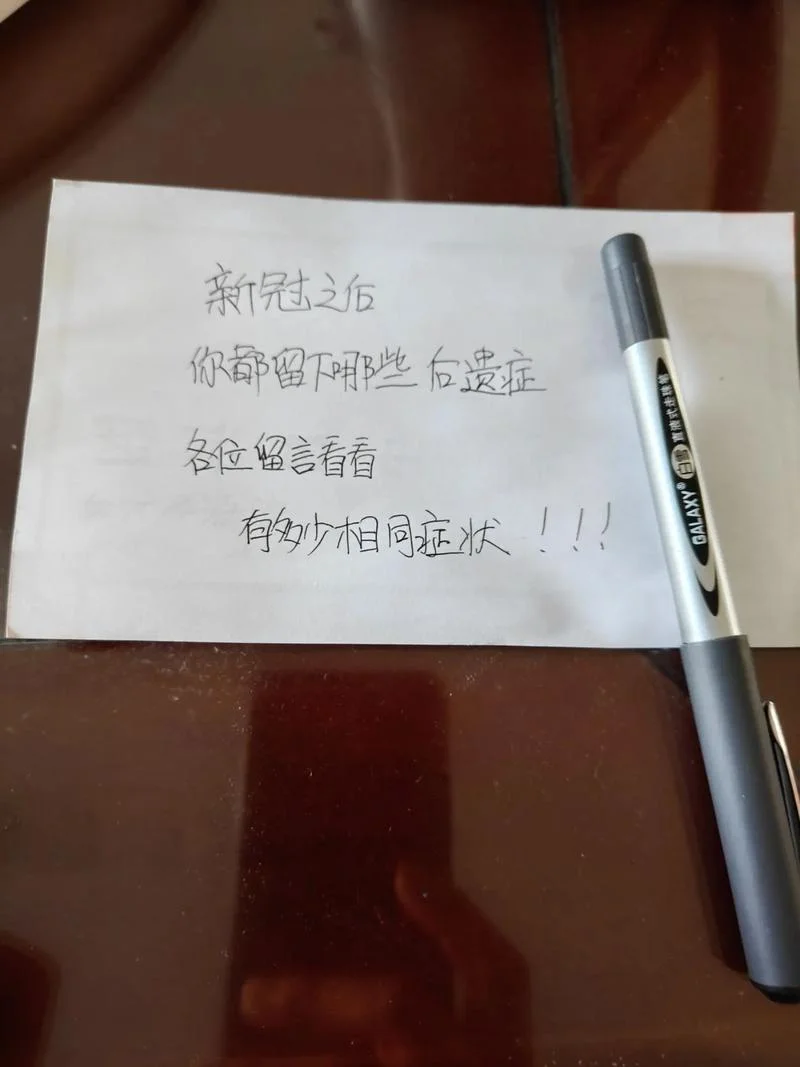 新冠之后
你都留下哪些后遗症
各位留言看看
有多少相同症状!!!
GALAXY® 白雪 直液式走珠笔